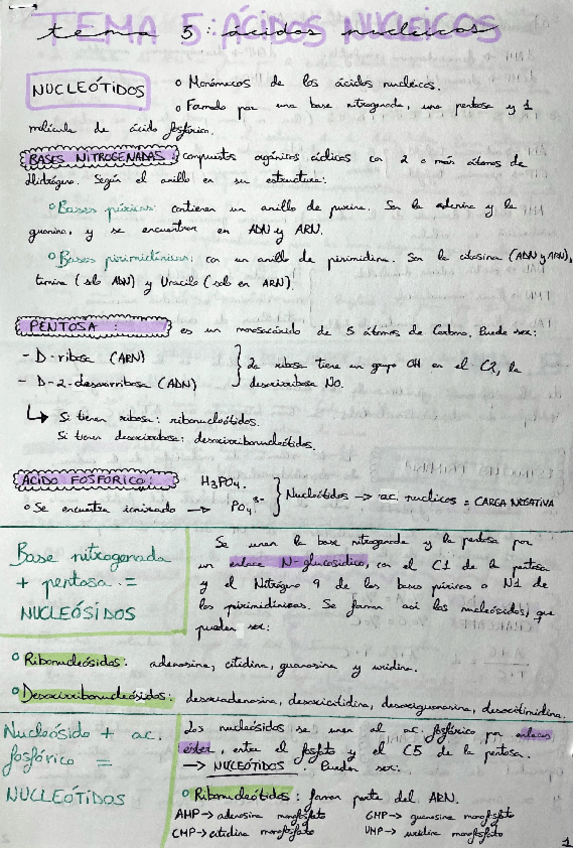 TEMA 5: ÁCIDOS NUCLEICOS
tema 5: ácidos nucleicos
NUCLEÓTIDOS
o Monómeros de los ácidos nucleicos.
o Formado por una base nitrogenada, una pentosa y 1
molécula de ácido fosfórico.
BASES NITROGENADAS: compuestos orgánicos cíclicos con 2 o más átomos de
Nitrógeno. Según el anillo en su estructura:
o Bases púricas: contienen un anillo de purina. Son la adenina y la
guanina, y se encuentran en ADN y ARN.
o Bases pirimidínicas: con un anillo de pirimidina. Son la citosina (ADN y ARN),
timina (solo ADN) y Uracilo (solo en ARN).
PENTOSA: es un monosacárido de 5 átomos de Carbono. Puede ser:
- D-ribosa (ARN)
- D-2-desoxirribosa (ADN)
La ribosa tiene un grupo OH en el C2, la
desoxirribosa NO.
↳ Si tienen ribosa: ribonucleótidos.
Si tienen desoxirribosa: desoxirribonucleótidos.
ÁCIDO FOSFÓRICO: H3PO4.
o Se encuentra ionizado → PO4 3-
Nucleótidos → ac. nucleicos = CARGA NEGATIVA
Base nitrogenada
+ pentosa =
NUCLEÓSIDOS
Se unen la base nitrogenada y la pentosa por
un enlace N-glucosídico, con el C1 de la pentosa
y el Nitrógeno 9 de las bases púricas o N1 de
las pirimidínicas. Se forman así los nucleósidos, que
pueden ser:
o Ribonucleósidos: adenosina, citidina, guanosina y uridina.
o Desoxirribonucleósidos: desoxiadenosina, desoxicitidina, desoxiguanosina, desoxitimidina.
Nucleósido + ac.
fosfórico =
NUCLEÓTIDOS
Los nucleósidos se unen al ac. fosfórico por enlaces
éster, entre el fosfato y el C5 de la pentosa.
→ NUCLEÓTIDOS. Pueden ser:
o Ribonucleótidos: forman parte del ARN.
AMP → adenosina monofosfato
GMP → guanosina monofosfato
CMP → citidina monofosfato
UMP → uridina monofosfato
1